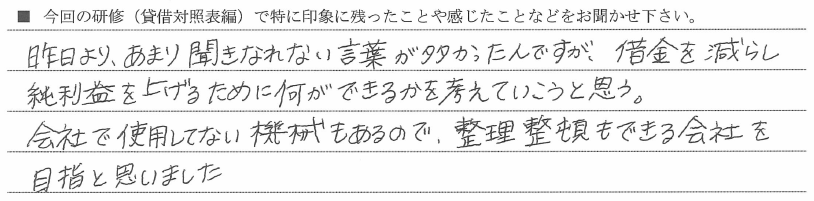 ■ 今回の研修（貸借対照表編）で特に印象に残ったことや感じたことなどをお聞かせ下さい。
昨日より、あまり聞きなれない言葉が多かったんですが、借金を減らし
純利益を上げるために何ができるかを考えていこうと思う。
会社で使用してない機械もあるので、整理整頓もできる会社を
目指と思いました